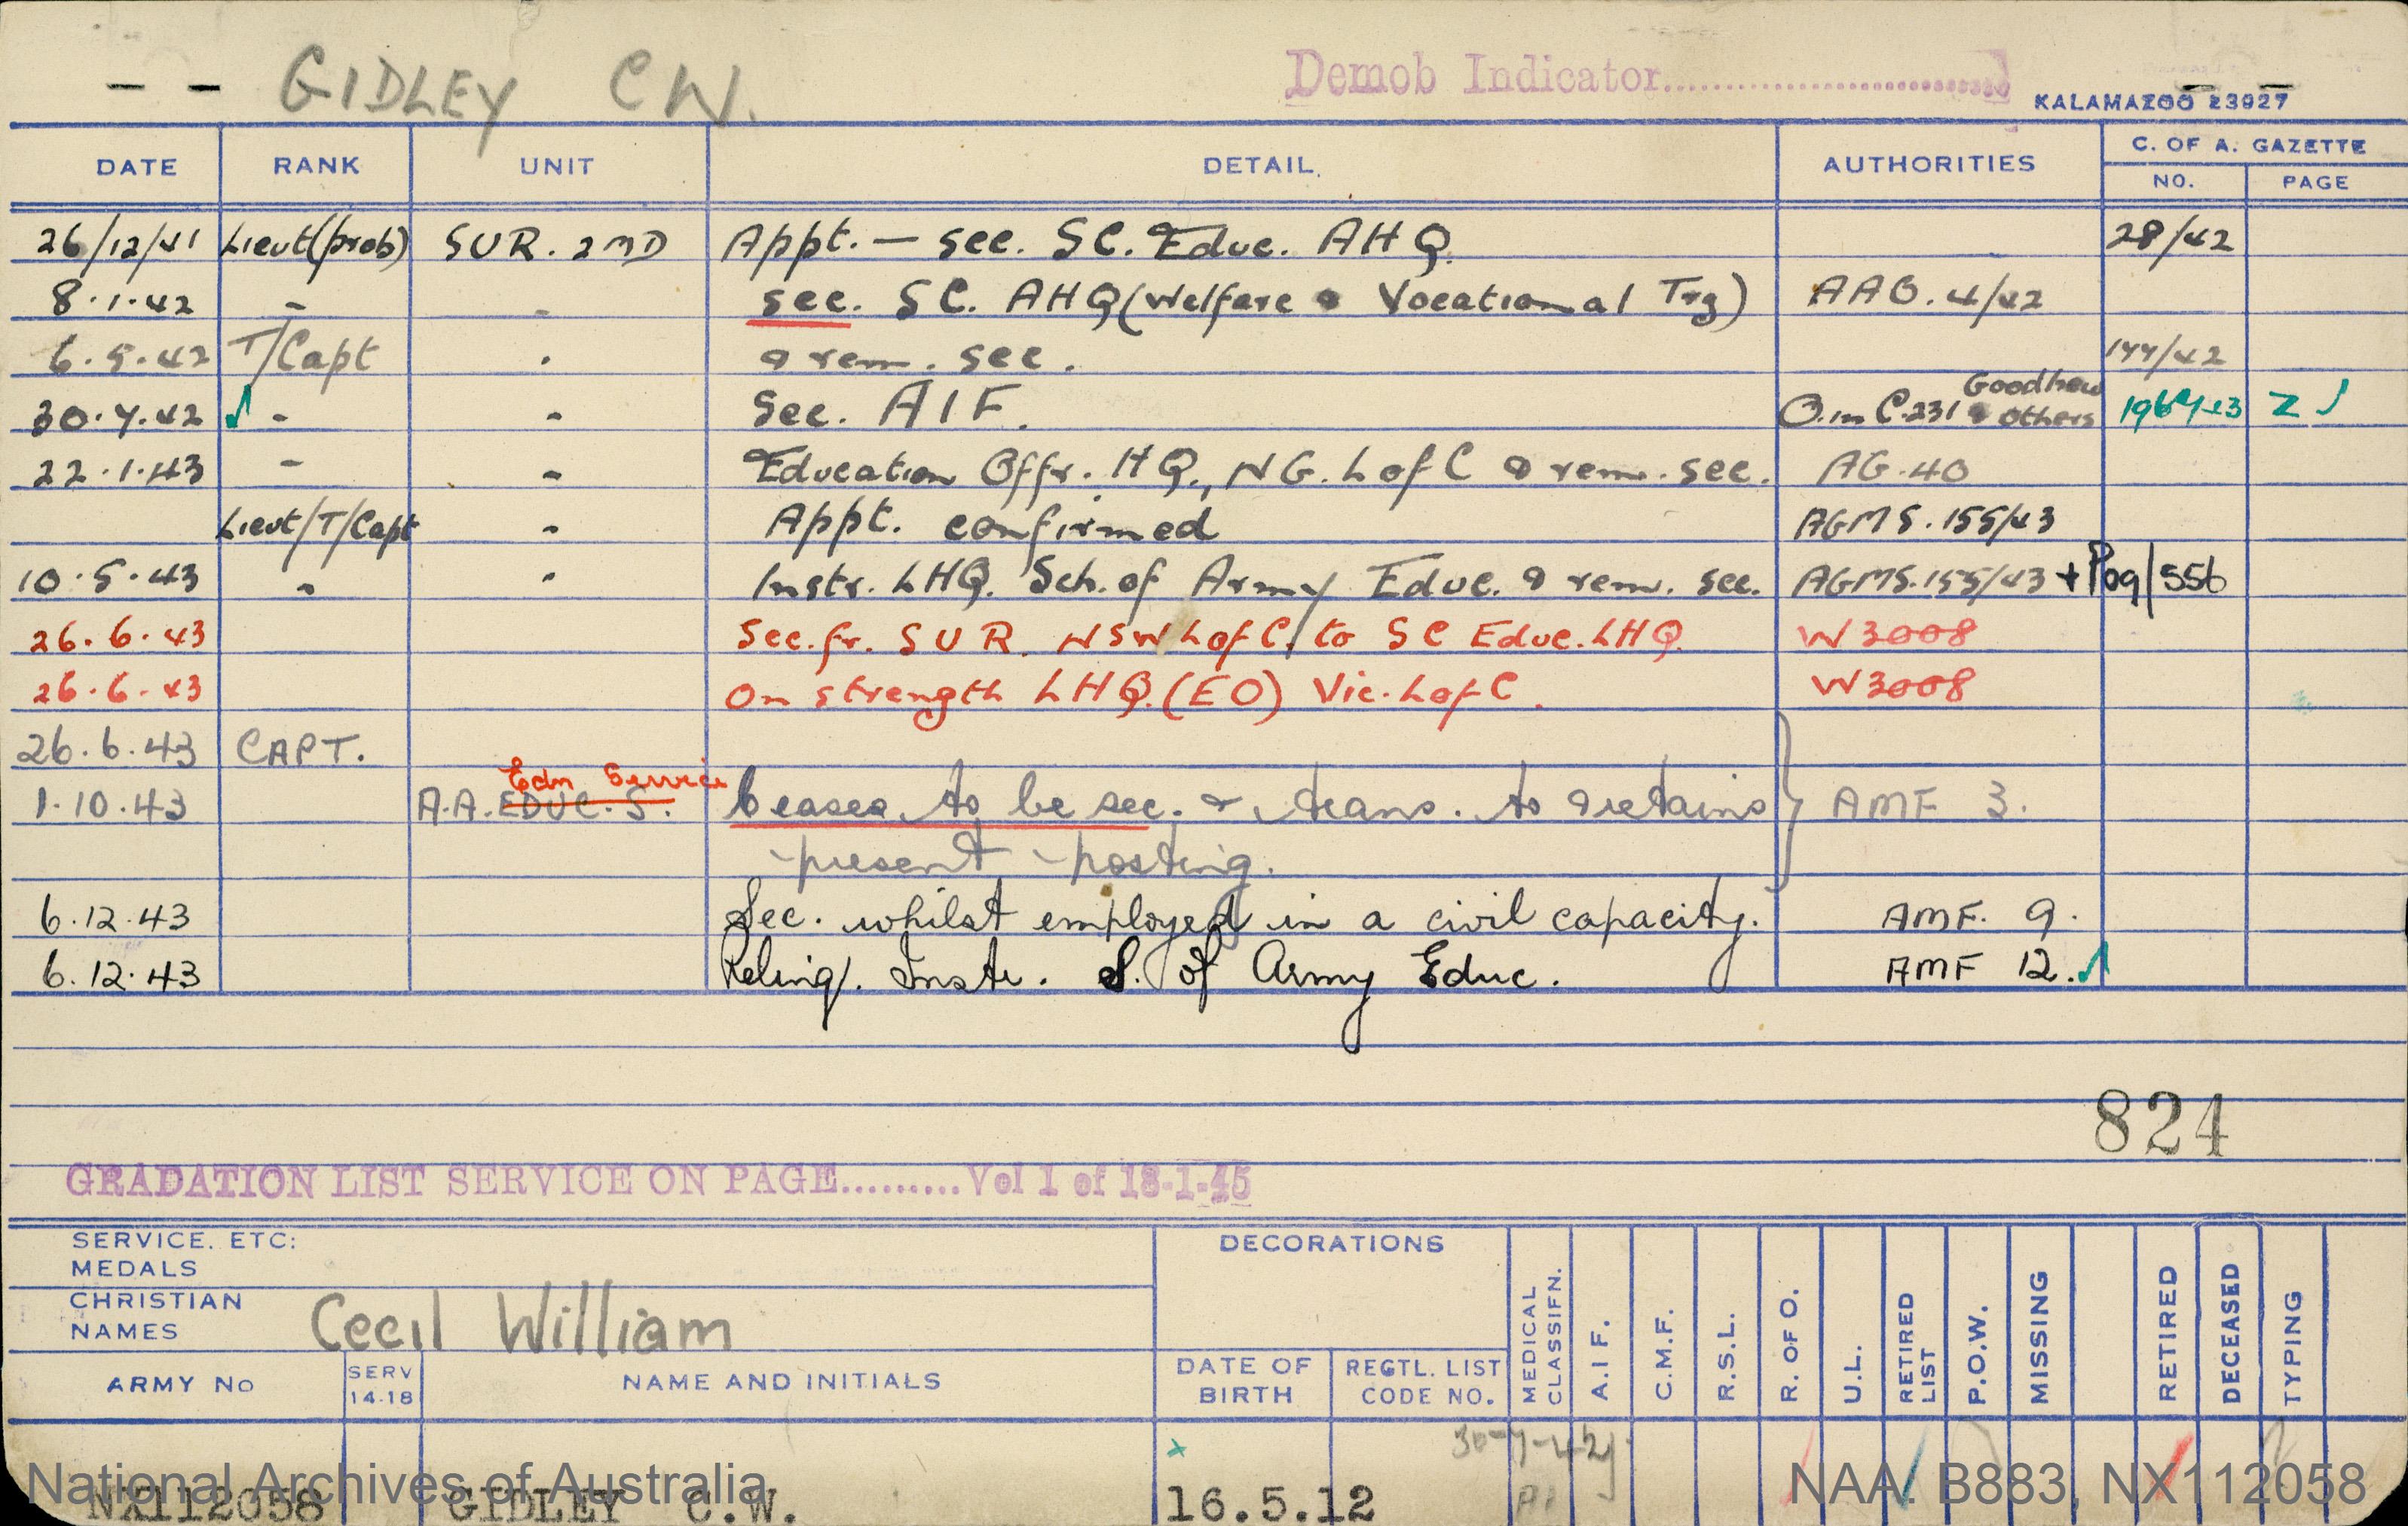 GIDLEY C W.
Demob Indicator
KALAMAZOO 23927
DATE RANK UNIT DETAIL. AUTHORITIES C. OF A. GAZETTE
NO. PAGE
26/12/41 Lieut(prob) SUR. 2MD Appt. — sec. SC. Educ. AHQ. 28/42
8.1.42 - - sec. SC. AHQ (Welfare & Vocational Trg) AAO. 4/42
6.5.42 T/Capt . & rem. sec. 144/42
30.7.42 - - Sec. AIF. O.in C.231 Goodhew & Others Z
22.1.43 - - Education Offr. HQ., NG. L of C & rem. sec. AG.40
Lieut/T/Capt - Appt. confirmed AGMS. 155/43
10.5.43 - - Instr. LHQ. Sch. of Army Educ. & rem. sec. AGMS.155/43 + Pog/556
26.6.43 Sec. fr. SUR. NSW L of C. to SC Educ. LHQ. W3008
26.6.43 On strength LHQ. (EO) Vic. L of C. W3008
26.6.43 CAPT.
Edn Service
1.10.43 A.A. EDUC. S. Ceases to be sec. & trans. to & retains AMF 3.
present posting.
6.12.43 Sec. whilst employed in a civil capacity. AMF. 9.
6.12.43 Relinq/. Instr. S. of Army Educ. AMF 12.
824
GRADATION LIST SERVICE ON PAGE.........Vol 1 of 18-1-45
SERVICE. ETC:
MEDALS
DECORATIONS
CHRISTIAN
NAMES
Cecil William
ARMY No SERV 14-18 NAME AND INITIALS DATE OF BIRTH REGTL. LIST CODE NO. MEDICAL CLASSIFN. A.I F. C.M.F. R.S.L. R. OF O. U.L. RETIRED LIST P.O.W. MISSING RETIRED DECEASED TYPING
30-7-42
A1
NX112058 GIDLEY C.W. 16.5.12
National Archives of Australia NAA: B883, NX112058